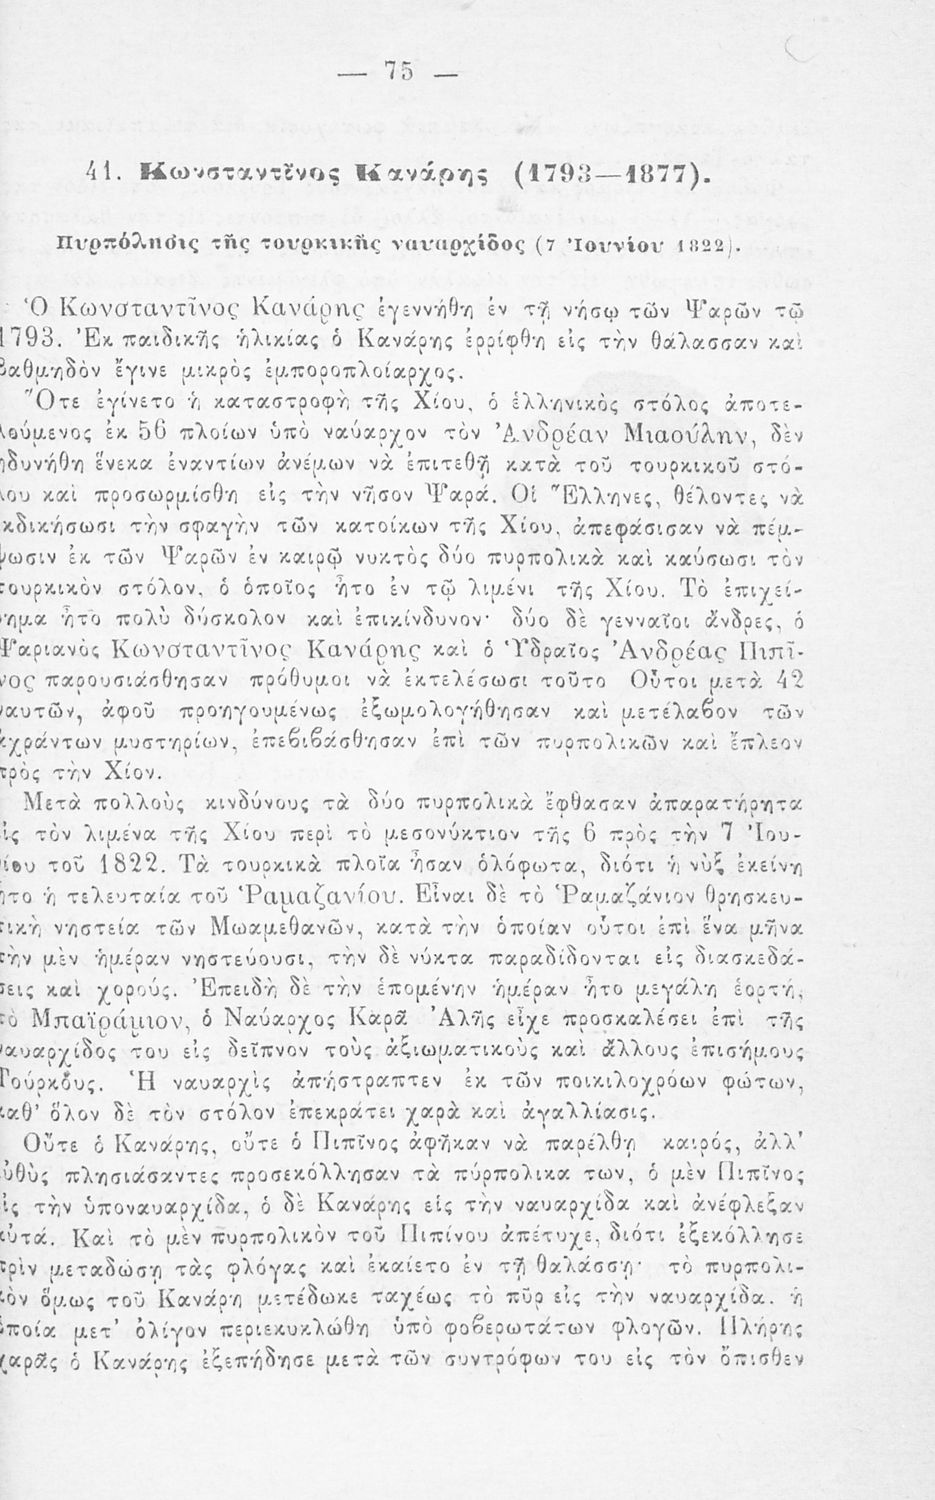 — 75 —
41. Κωνσταντῖνος Κανάρης (1793—1877).
Πυρπόλησις τῆς τουρκικῆς ναυαρχίδος (7 Ἰουνίου 1822).
Ὁ Κωνσταντῖνος Κανάρης ἐγεννήθη ἐν τῇ νήσῳ τῶν Ψαρῶν τῷ
1793. Ἐκ παιδικῆς ἡλικίας ὁ Κανάρης ἐρρίφθη εἰς τὴν θάλασσαν καὶ
βαθμηδὸν ἔγινε μικρὸς ἐμποροπλοίαρχος.
Ὅτε ἐγίνετο ἡ καταστροφὴ τῆς Χίου, ὁ ἑλληνικὸς στόλος ἀποτε-
λούμενος ἐκ 56 πλοίων ὑπὸ ναύαρχον τὸν Ἀνδρέαν Μιαούλην, δὲν
ηδυνήθη ἕνεκα ἐναντίων ἀνέμων νὰ ἐπιτεθῇ κατὰ τοῦ τουρκικοῦ στό-
λου καὶ προσωρμίσθη εἰς τὴν νῆσον Ψαρά. Οἱ Ἕλληνες, θέλοντες νὰ
κδικήσωσι τὴν σφαγὴν τῶν κατοίκων τῆς Χίου, ἀπεφάσισαν νὰ πέμ-
ψωσιν ἐκ τῶν Ψαρῶν ἐν καιρῷ νυκτὸς δύο πυρπολικὰ καὶ καύσωσι τὸν
τουρκικὸν στόλον, ὁ ὁποῖος ἦτο ἐν τῷ λιμένι τῆς Χίου. Τὸ ἐπιχεί-
ρημα ἦτο πολὺ δύσκολον καὶ ἐπικίνδυνον· δύο δὲ γενναῖοι ἄνδρες, ὁ
Ψαριανὸς Κωνσταντῖνος Κανάρης καὶ ὁ Ὑδραῖος Ἀνδρέας Πιπῖ-
νος παρουσιάσθησαν πρόθυμοι νὰ ἐκτελέσωσι τοῦτο Οὗτοι μετὰ 42
ναυτῶν, ἀφοῦ προηγουμένως ἐξωμολογήθησαν καὶ μετέλαβον τῶν
ἀχράντων μυστηρίων, ἐπεβιβάσθησαν ἐπὶ τῶν πυρπολικῶν καὶ ἔπλεον
πρὸς τὴν Χίον.
Μετὰ πολλοὺς κινδύνους τὰ δύο πυρπολικὰ ἔφθασαν ἀπαρατήρητα
ἰς τὸν λιμένα τῆς Χίου περὶ τὸ μεσονύκτιον τῆς 6 πρὸς τὴν 7 Ἰου-
νίου τοῦ 1822. Τὰ τουρκικὰ πλοῖα ἦσαν ὁλόφωτα, διότι ἡ νὺξ ἐκείνη
ἦτο ἡ τελευταία τοῦ Ῥαμαζανίου. Εἶναι δὲ τὸ Ῥαμαζάνιον θρησκευ-
τικὴ νηστεία τῶν Μωαμεθανῶν, κατὰ τὴν ὁποίαν οὗτοι ἐπὶ ἕνα μῆνα
τὴν μὲν ἡμέραν νηστεύουσι, τὴν δὲ νύκτα παραδίδονται εἰς διασκεδά-
σεις καὶ χορούς. Ἐπειδὴ δὲ τὴν ἑπομένην ἡμέραν ἦτο μεγάλη ἑορτή,
τὸ Μπαϊράμιον, ὁ Ναύαρχος Καρᾶ Ἀλῆς εἶχε προσκαλέσει ἐπὶ τῆς
ναυαρχίδος του εἰς δεῖπνον τοὺς ἀξιωματικοὺς καὶ ἄλλους ἐπισήμους
Τούρκους. Ἡ ναυαρχὶς ἀπήστραπτεν ἐκ τῶν ποικιλοχρόων φώτων,
καθ’ ὅλον δὲ τὸν στόλον ἐπεκράτει χαρὰ καὶ ἀγαλλίασις.
Οὔτε ὁ Κανάρης, οὔτε ὁ Πιπῖνος ἀφῆκαν νὰ παρέλθῃ καιρός, ἀλλ’
ὐθὺς πλησιάσαντες προσεκόλλησαν τὰ πύρπολικα των, ὁ μὲν Πιπῖνος
ἰς τὴν ὑποναυαρχίδα, ὁ δὲ Κανάρης εἰς τὴν ναυαρχίδα καὶ ἀνέφλεξαν
αὐτά. Καὶ τὸ μὲν πυρπολικὸν τοῦ Πιπίνου ἀπέτυχε, διότι ἐξεκόλλησε
πρὶν μεταδώσῃ τὰς φλόγας καὶ ἐκαίετο ἐν τῇ θαλάσσῃ· τὸ πυρπολι-
κὸν ὅμως τοῦ Κανάρη μετέδωκε ταχέως τὸ πῦρ εἰς τὴν ναυαρχίδα. ἡ
ὁποία μετ’ ὀλίγον περιεκυκλώθη ὑπὸ φοβερωτάτων φλογῶν. Πλήρης
χαρᾶς ὁ Κανάρης ἐξεπήδησε μετὰ τῶν συντρόφων του εἰς τὸν ὄπισθεν